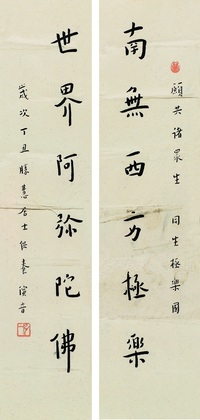 願共諸眾生 同生極樂國
南無西方極樂
世界阿彌陀佛
歲次丁丑勝慧居士供養演音